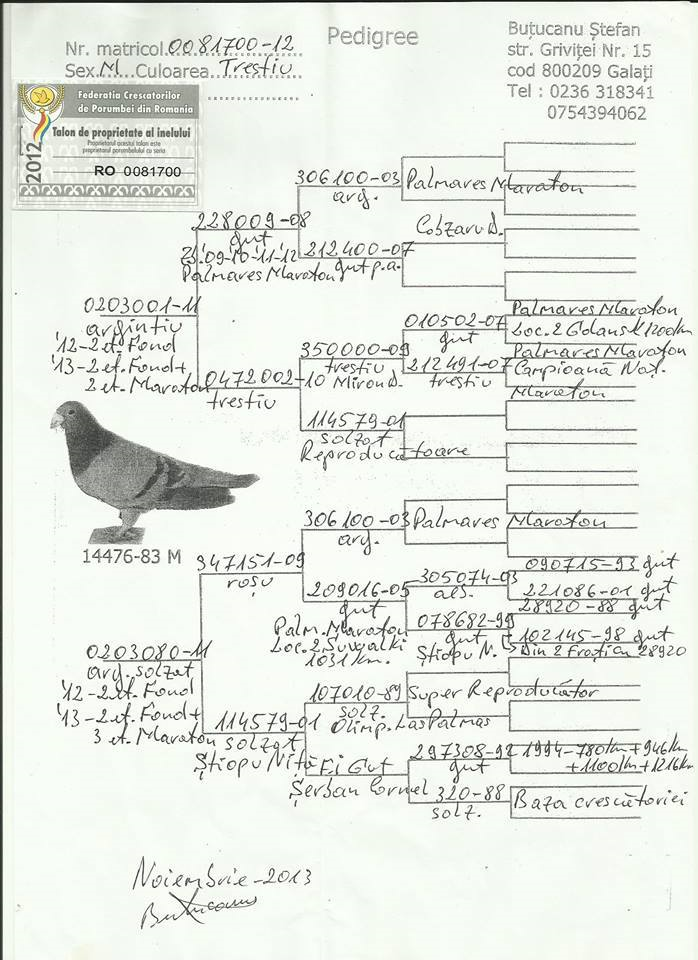 Nr. matricol.0081700-12
Pedigree
Buțucanu Ștefan
Sex.M...Culoarea.Trestiu
str. Griviței Nr. 15
cod 800209 Galați
Tel : 0236 318341
0754394062
Federatia Crescatorilor
de Porumbei din Romania
Talon de proprietate al inelului
Proprietarul acestui talon este
proprietarul porumbelului cu seria
2012
RO 0081700
306100-03
arg.
Palmares Maraton
228009-08
gut
Cobzaru D.
Zb'09-10-11-'12
Palmares Maraton
212400-07
gut p.a.
0203001-11
argintiu
'12-2 et. Fond
'13-2 et. Fond+
2 et. Maraton
010502-07
gut
Palmares Maraton
Loc. 2 Gdansk 1200km
350000-09
trestiu
Miron D.
212491-07
trestiu
Palmares Maraton
Campioană Naț.
Maraton
0472002-10
trestiu
114579-01
solzat
Reproducătoare
14476-83 M
306100-03
arg.
Palmares Maraton
347151-09
roșu
209016-05
gut
Palm. Maraton
Loc. 2 Suwalki
1031 km.
305074-03
als.
090715-93 gut
221086-01 gut
078682-99
gut
Știopu N.
28920-88 gut
102145-98 gut
Din 2 Frați cu 28920
0203080-11
arg. solzat
'12-2 et. Fond
'13-2 et. Fond+
3 et. Maraton
107010-89
solz.
Olimp. Las Palmas
Super Reproducător
114579-01
solzat
Știopu Niță
F.i Gut
Șerban Cornel
297308-92
gut
1994-780km+946km
+1100km+1216km
320-88
solz.
Baza crescătoriei
Noiembrie-2013